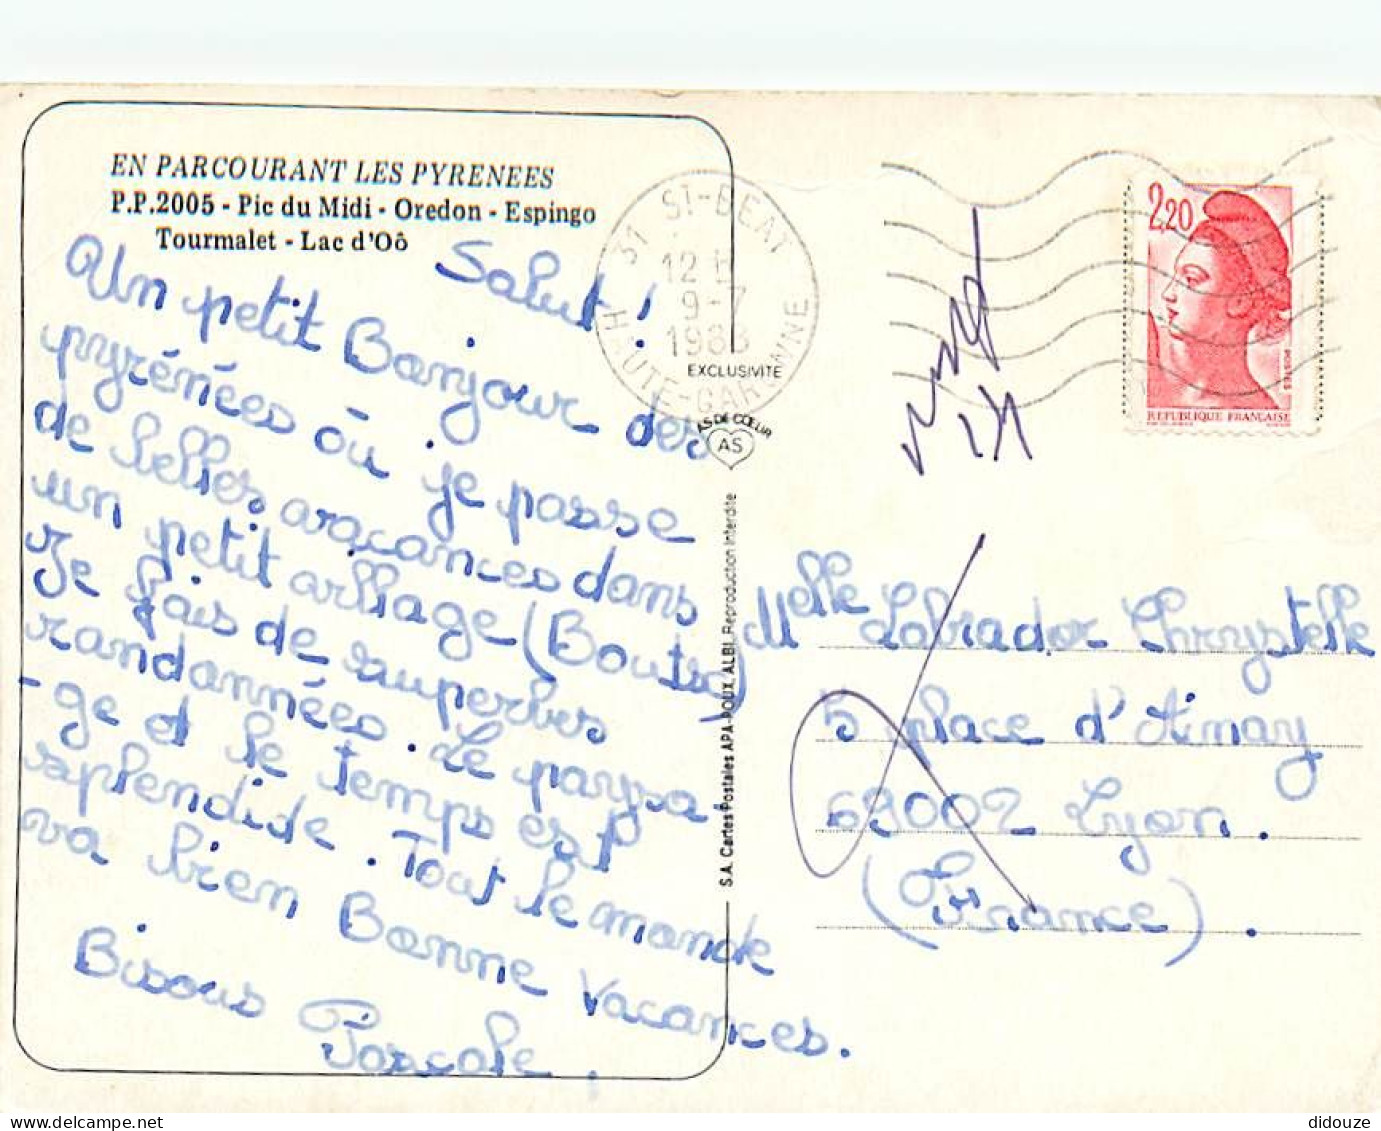 EN PARCOURANT LES PYRENEES
P.P.2005 - Pic du Midi - Oredon - Espingo
Tourmalet - Lac d'Oô
Salut !
Un petit Bonjour des
pyrénées où je passe
de belles vacances dans
un petit village (Boutx)
Je fais de superbes
randonnées. Le paysa
-ge et le temps est
splendide. Tout le monde
va bien Bonne Vacances.
Bisous
Pascale.
31 ST-BEAT
12 H
9-7
1988
HAUTE-GARONNE
EXCLUSIVITE
AS DE CŒUR
AS
S.A. Cartes Postales APA-POUX, ALBI. Reproduction Interdite
2,20
POSTES
REPUBLIQUE FRANCAISE
Melle Labrador Chrystelle
5 place d'Ainay
69002 Lyon.
(France).
didouze